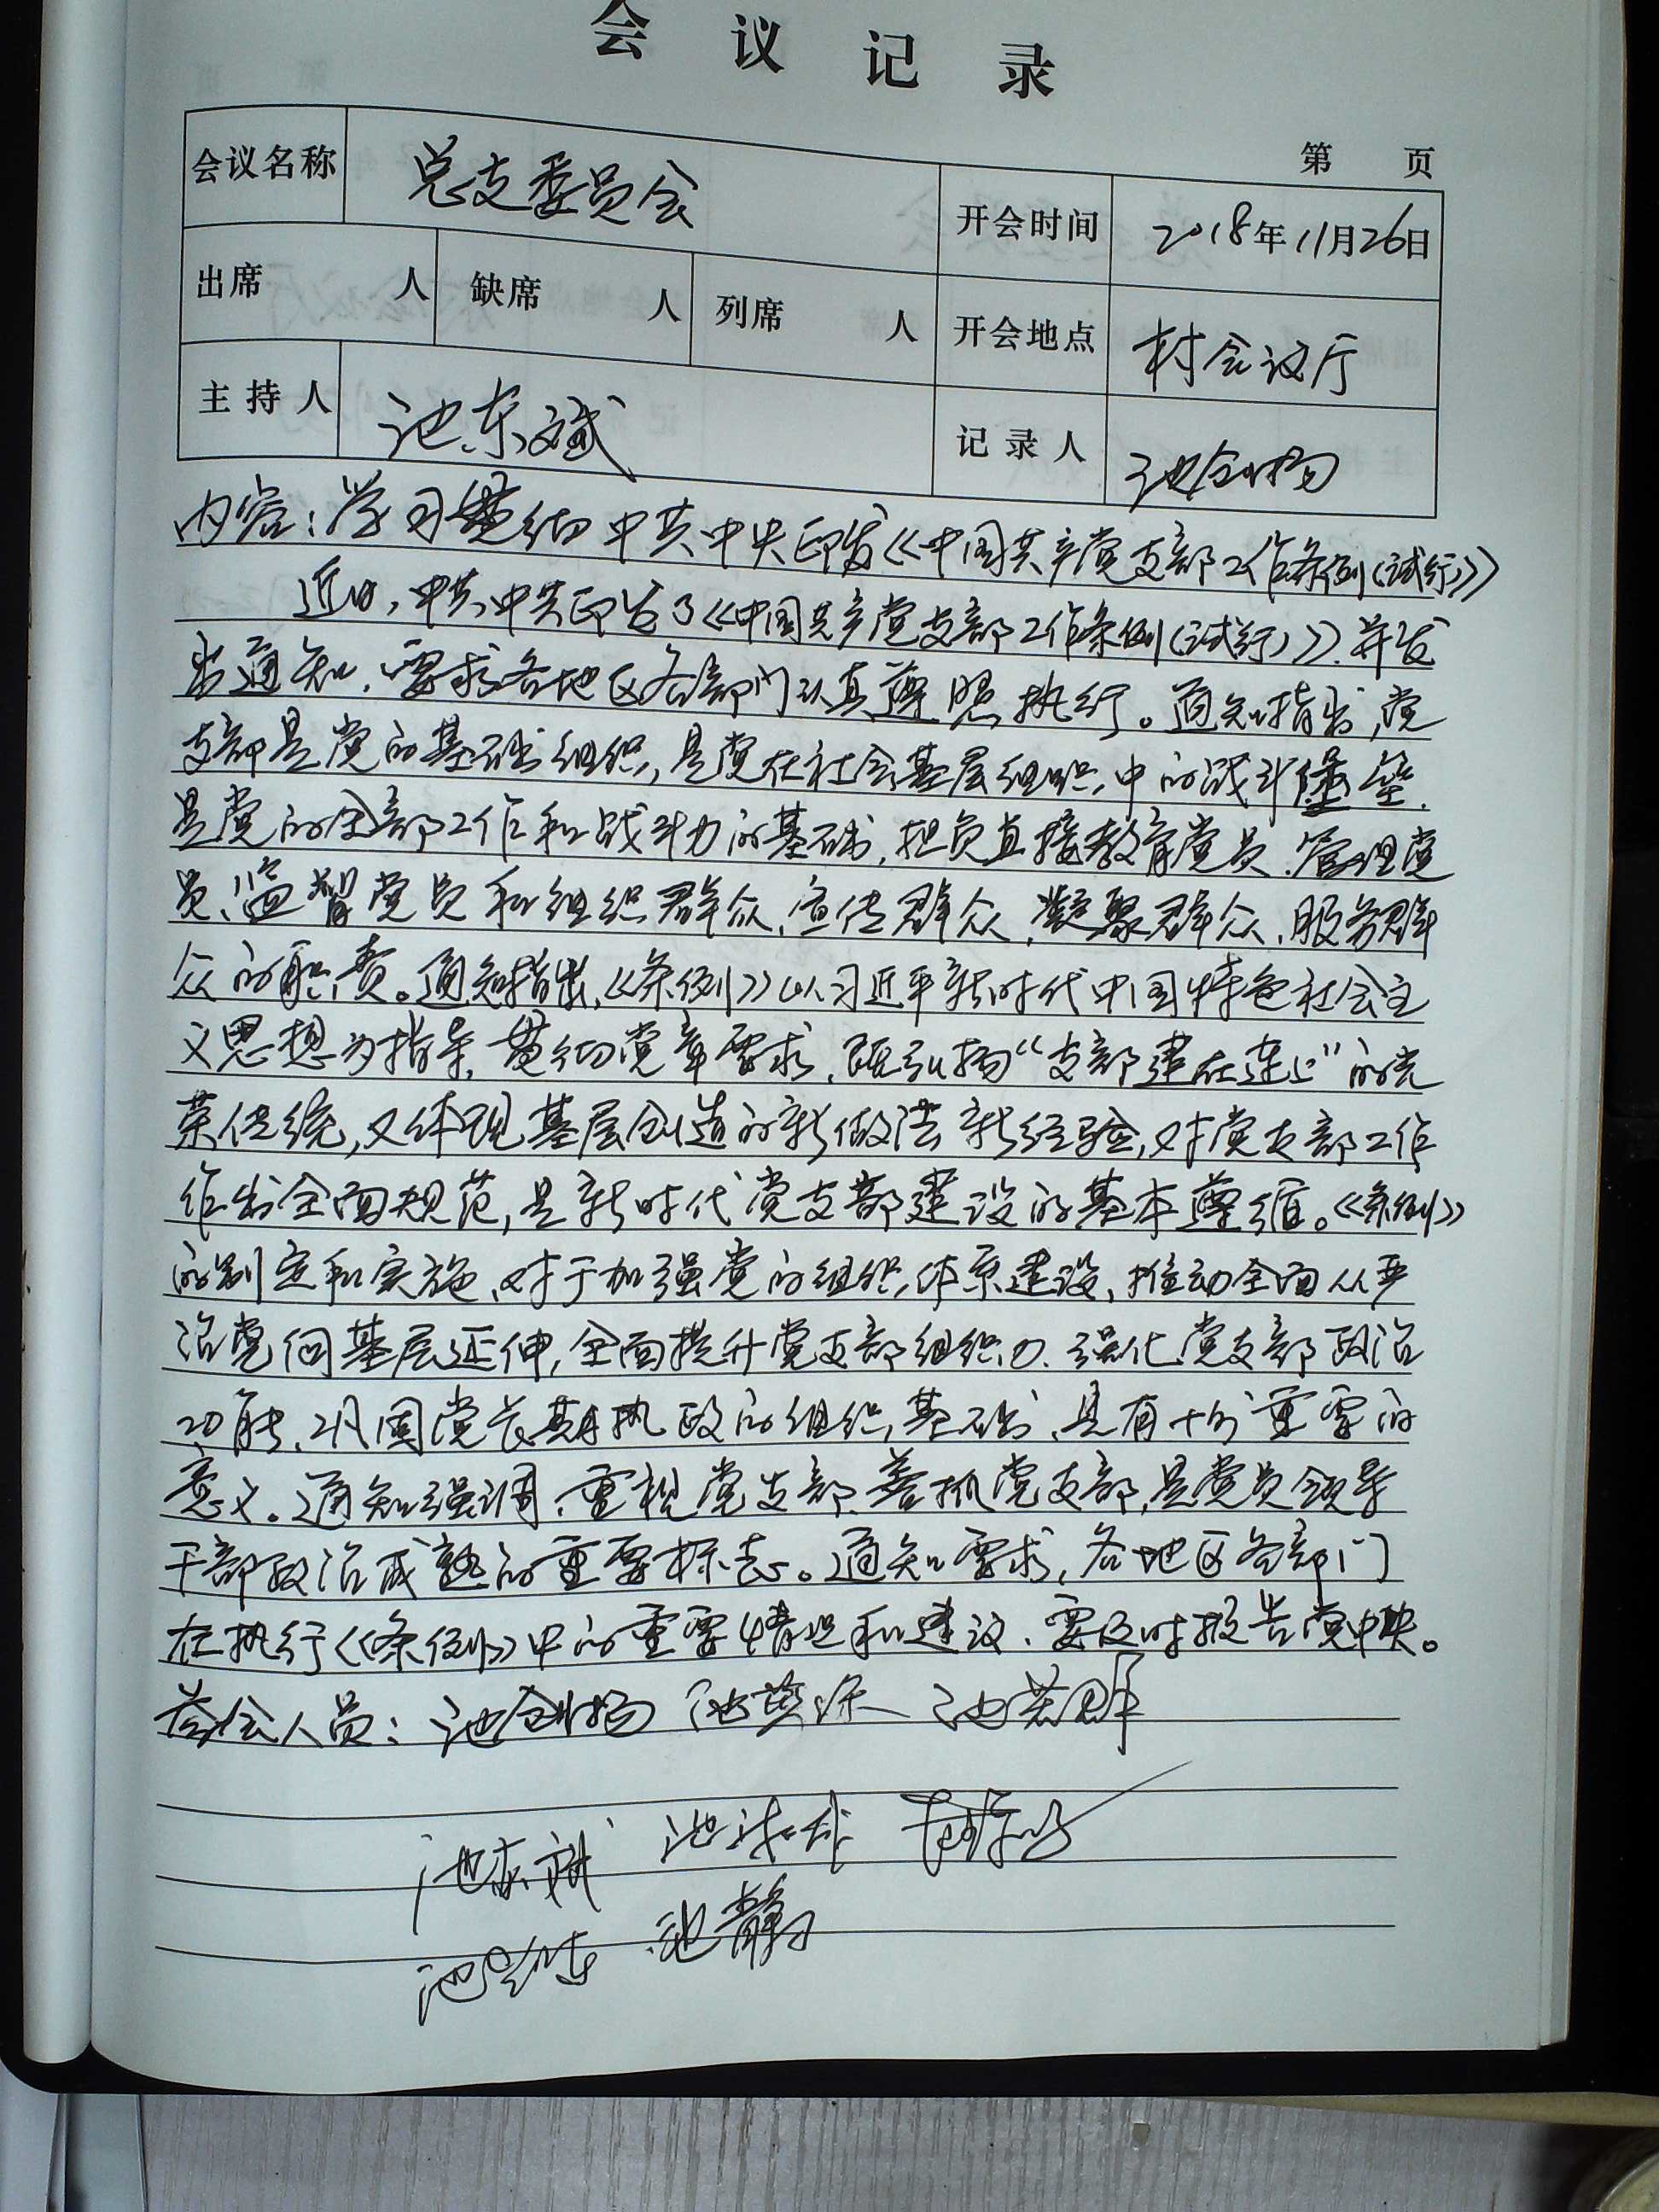 会议记录
第 页
会议名称 总支委员会 开会时间 2018年11月26日
出席 人 缺席 人 列席 人 开会地点 村会议厅
主持人 池东斌 记录人 池创扬
内容：学习贯彻中共中央印发《中国共产党支部工作条例(试行)》
近日，中共中央印发了《中国共产党支部工作条例(试行)》，并发
出通知，要求各地区各部门认真遵照执行。通知指出，党
支部是党的基础组织，是党在社会基层组织中的战斗堡垒，
是党的全部工作和战斗力的基础，担负直接教育党员、管理党
员、监督党员和组织群众、宣传群众、凝聚群众、服务群
众的职责。通知指出，《条例》以习近平新时代中国特色社会主
义思想为指导，贯彻党章要求，既弘扬“支部建在连上”的光
荣传统，又体现基层创造的新做法新经验，对党支部工作
作出全面规范，是新时代党支部建设的基本遵循。《条例》
的制定和实施，对于加强党的组织体系建设，推动全面从严
治党向基层延伸，全面提升党支部组织力、强化党支部政治
功能，巩固党长期执政的组织基础，具有十分重要的
意义。通知强调，重视党支部、善抓党支部，是党员领导
干部政治成熟的重要标志。通知要求，各地区各部门
在执行《条例》中的重要情况和建议，要及时报告党中央。
参会人员：池创扬 池 池若群
池东斌 池
池 池静